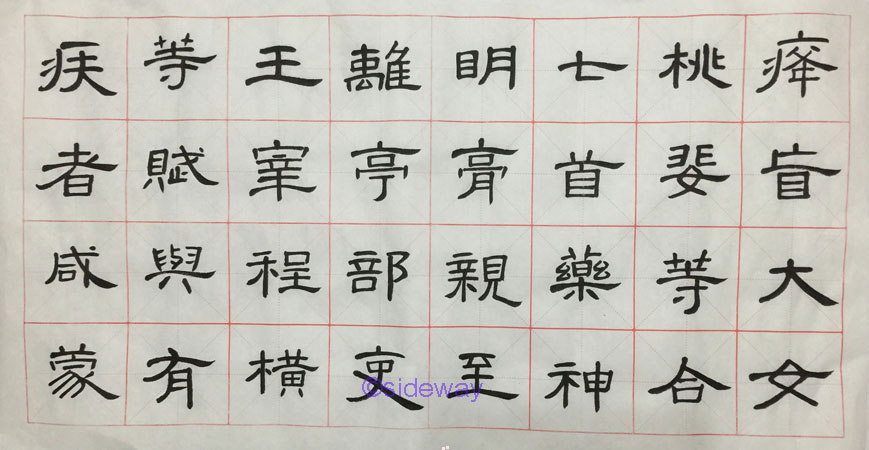 癃盲大女
桃婓等合
七首藥神
明膏親至
離亭部吏
王宰程橫
等賦與有
疾者咸蒙
©sideway